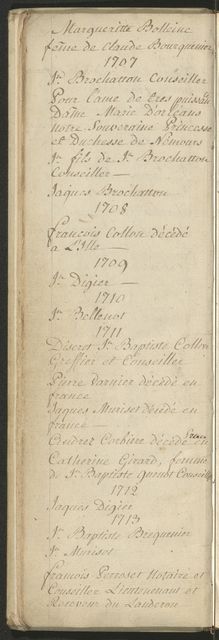 Margueritte Bolleine
feme de Claude Bourquinier
1707
Jn Brochatton Conseiller
Pour l'ame de tres puissante
Dame Marie Dorleans
notre Souveraine Princesse
et Duchesse de Nemours
Jn fils de Jn Brochatton
Conseiller —
Jaques Brochatton
1708
françois Collon décédé
a L'Isle —
1709
Jn Digier —
1710
Jn Bellenot
1711
Discret Jn Baptiste Collon
Greffier et Conseiller
Pierre varnier décédé en
france
Jaques Muriset décédé en
france —
Andrez Corbiere décédé en france
Catherine Girard, femme
de Jn Baptiste Conseiller
1712
Jaques Digier
1713
Jn Baptiste Brequenier
Jn Muriset
françois Perroset Notaire et
Conseiller Lieutennant et
Receveur du Landeron